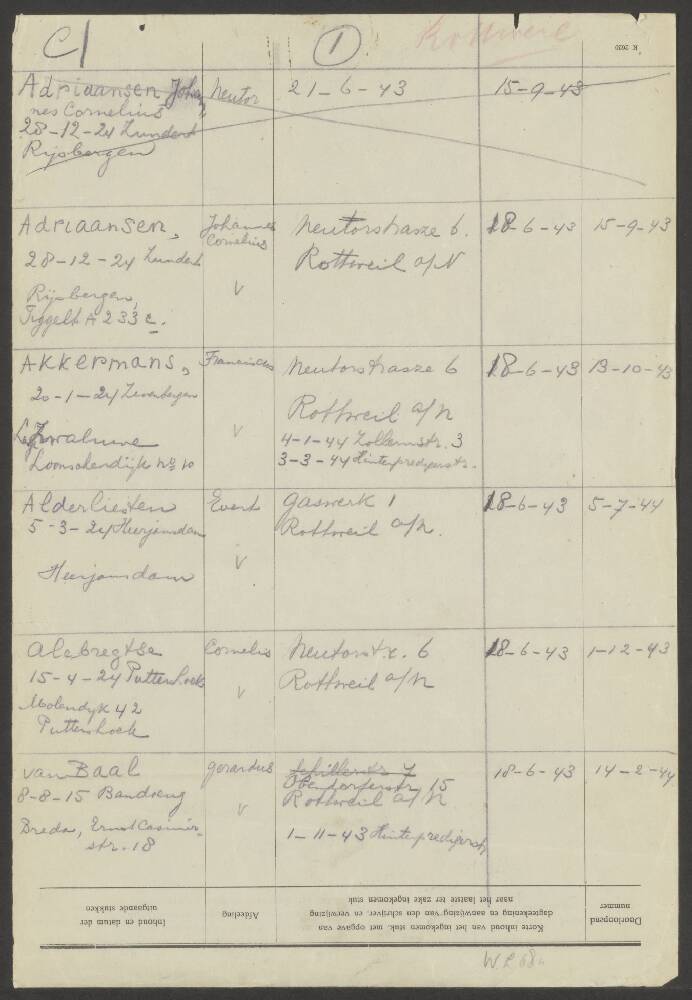 C1 1 Rottweil K 2630
Adriaansen, Johan Neutor 21-6-43 15-9-43
nes Cornelius
28-12-24 Zundert
Rijsbergen
Adriaansen, Johannes Neutorstrasze 6. 18-6-43 15-9-43
Cornelius
28-12-24 Zundert Rottweil a/N
Rijsbergen, V
Tiggelt A 233 c.
Akkermans, Franciscus Neutorstrasze 6 18-6-43 13-10-43
20-1-24 Zevenbergen
Rottweil a/N
Zwaluwe V 4-1-44 Zollernstr. 3
Loonschendijk No 10 3-3-44 Hinterpredigerstr.
Alderliesten Evert Gaswerk 1 18-6-43 5-7-44
5-3-24 Heerjansdam Rottweil a/N.
V
Heerjansdam
Alebregtse Cornelis Neutorstr. 6 18-6-43 1-12-43
15-4-24 Puttershoek Rottweil a/N
Molendyk 42 V
Puttershoek
van Baal Gerardus Schillerstr 7 18-6-43 14-2-44
Oberndorferstr 15
8-8-15 Bandoeng Rottweil a/N
V
Breda, Ernst Casimir- 1-11-43 Hinterpredigerstr
str. 18
Doorloopend nummer
Korte inhoud van het ingekomen stuk, met opgave van
dagteekening en aanwijzing van den schrijver, en verwijzing
naar het laatste ter zake ingekomen stuk
Afdeeling
Inhoud en datum der
uitgaande stukken